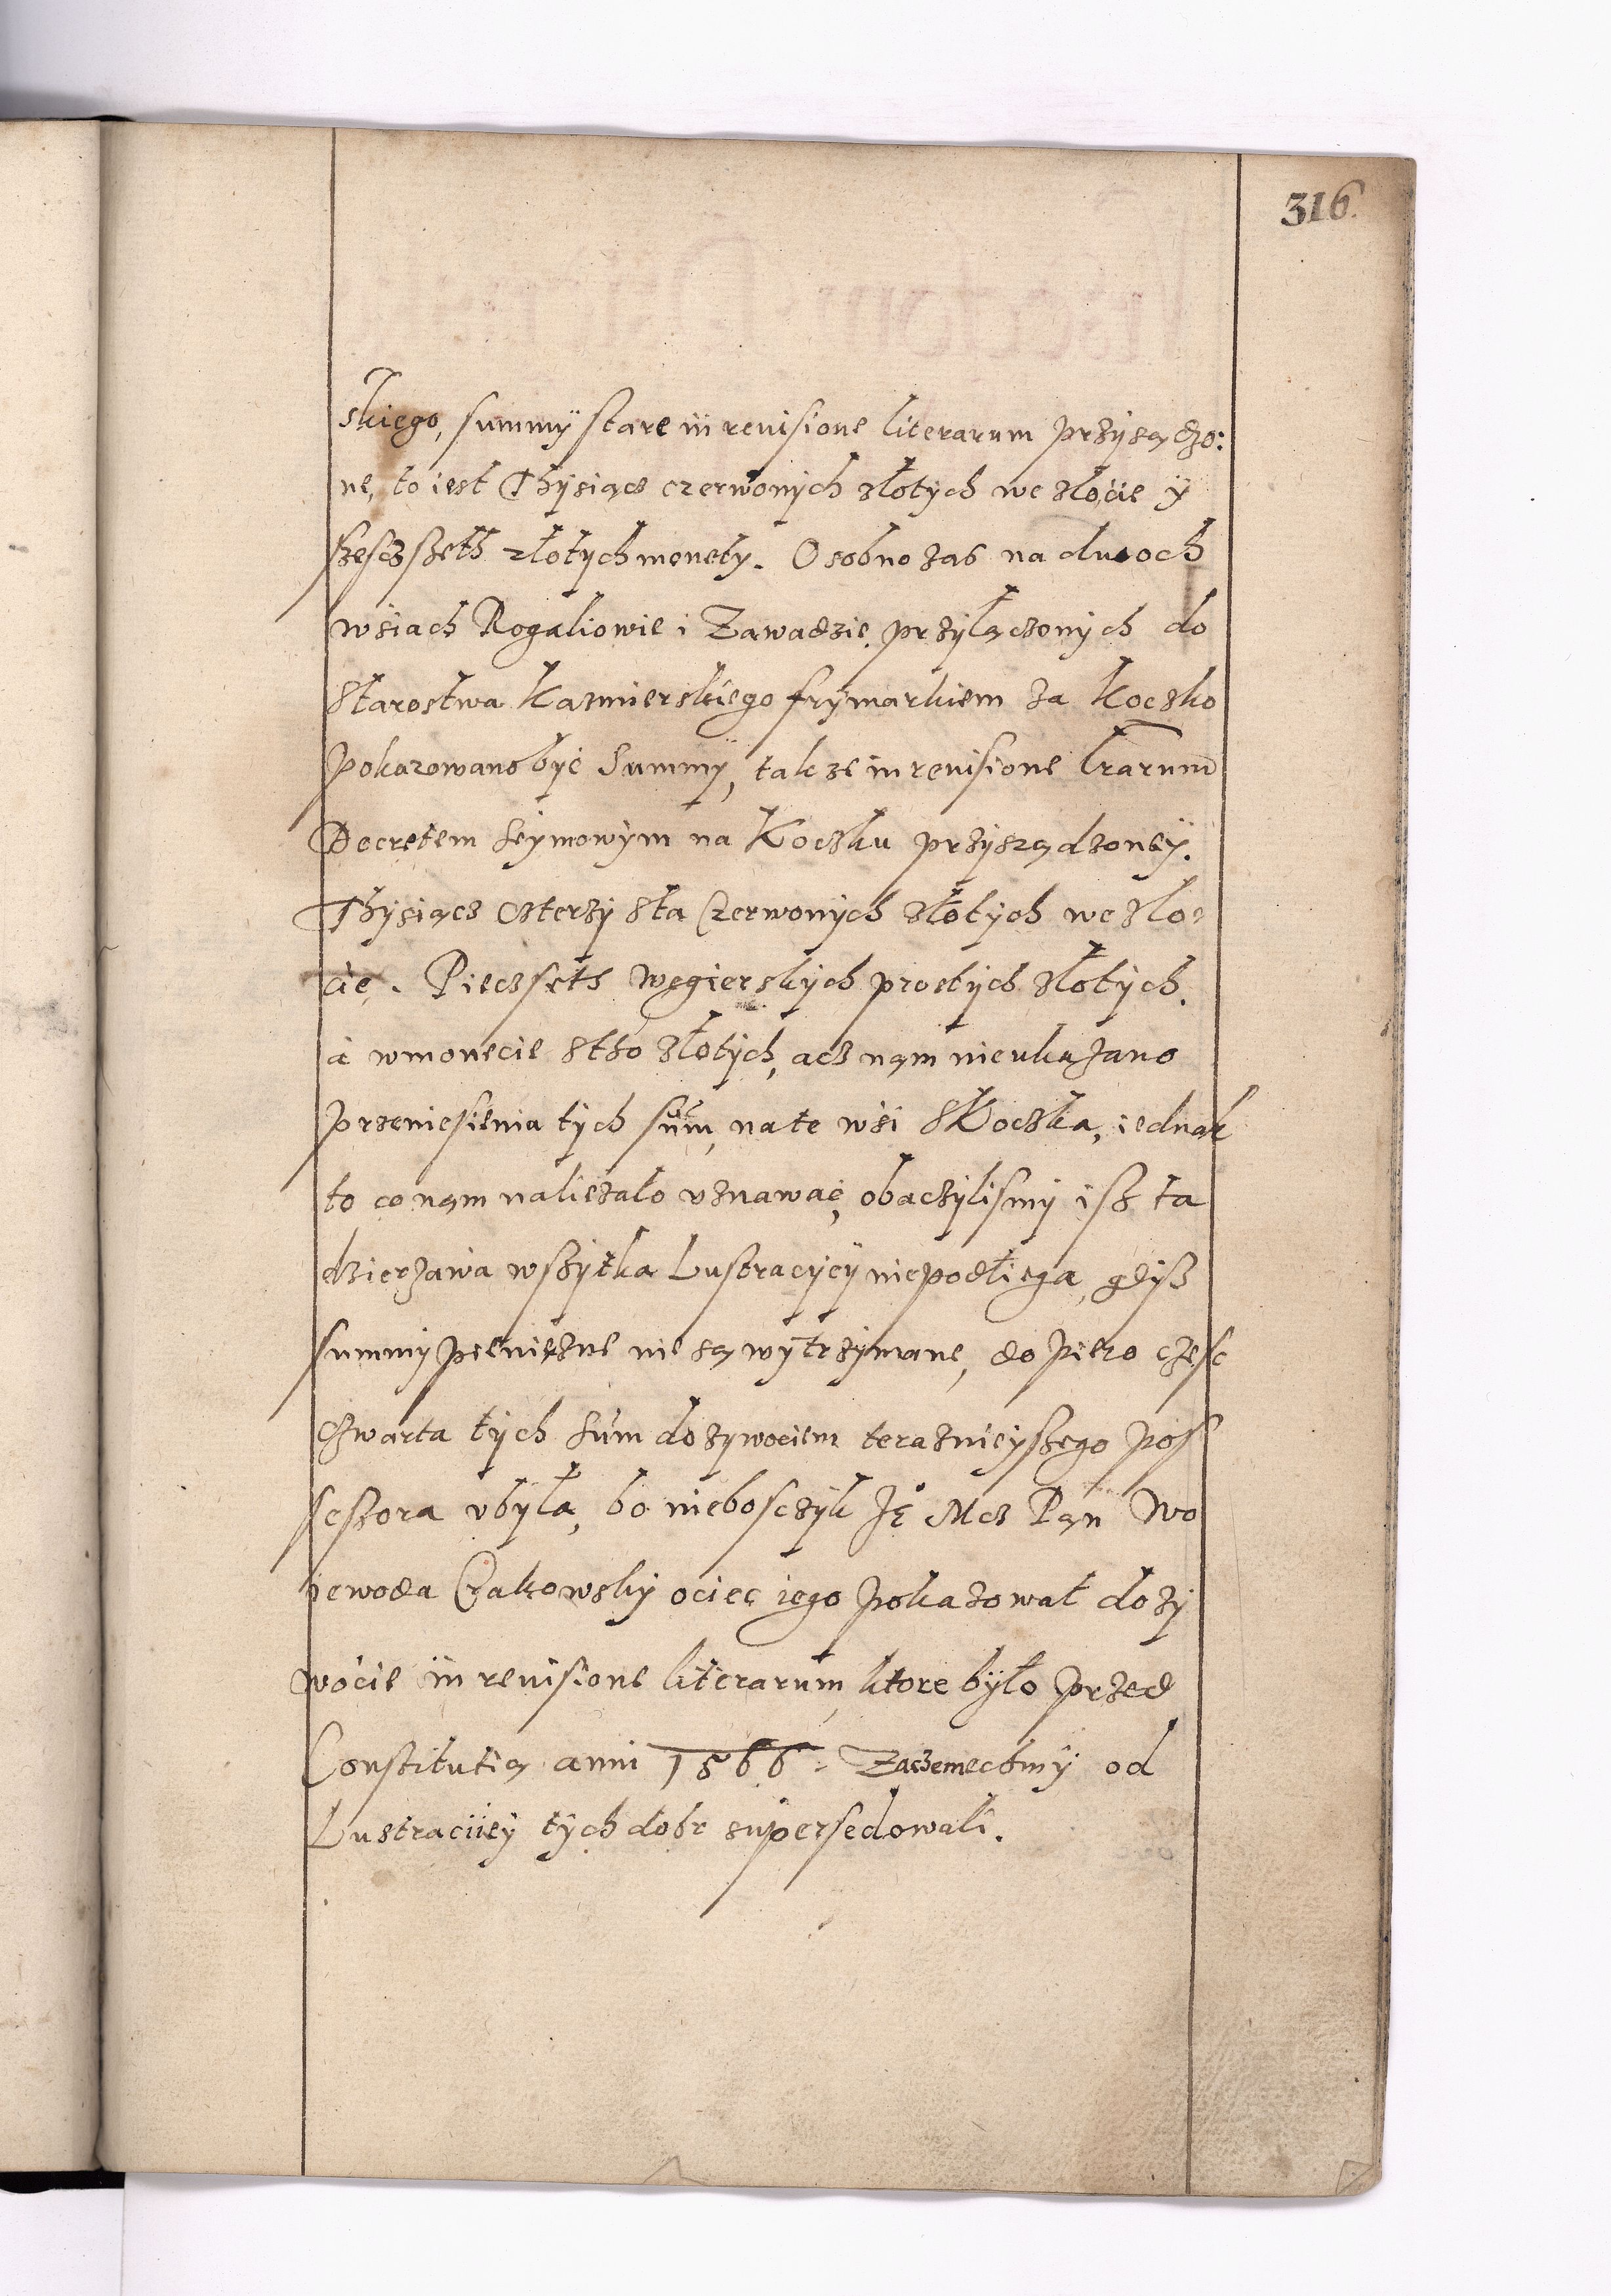 316.
skiego, summÿ stare in reuisione literarum przÿsądzo:
ne, to iest Thÿsiącz czerwonÿch złotÿch we złocie ÿ
szesczszeth złotÿch monetÿ. Osobno zas na dwoch
wsiach Rogaliowie i Zawadzie. przÿłączonÿch do
starostwa Kazmierskiego frÿmarkiem za Koczko
pokazowano bÿc summÿ, takze in reuisione lrarum
Decretem seÿmowÿm na Koczku przÿsządzoneÿ.
Thÿsiącz czterzÿ sta Czerwonÿch złotÿch we zło:
cie. Pieczseth węgierskÿch prostÿch złotÿch.
a wmonecie stho złotÿch, acz nąm nieukazano
przeniesienia tÿch sum, na te wsi s Koczka, iednak
to co nąm nalieżało vznawac, obaczÿlismÿ isz ta
dzierzawa wszÿtka Lustracÿeÿ niepodliega, gdÿsz
summÿ pieniężne nie są wÿtrzÿmane, do piero częsc
czwarta tÿch sum dozÿwociem teraznieÿszego pos
sessora vbÿła, bo niebosczÿk Je° Mcz Pąn Wo
iewoda Crakowskÿ ociec iego pokazował dozÿ
wocie in reuisione literarum, ktore bÿło przed
Constitutią anni 1566. Zaczemechmÿ od
Lustracÿieÿ tÿch dobr supersedowali.